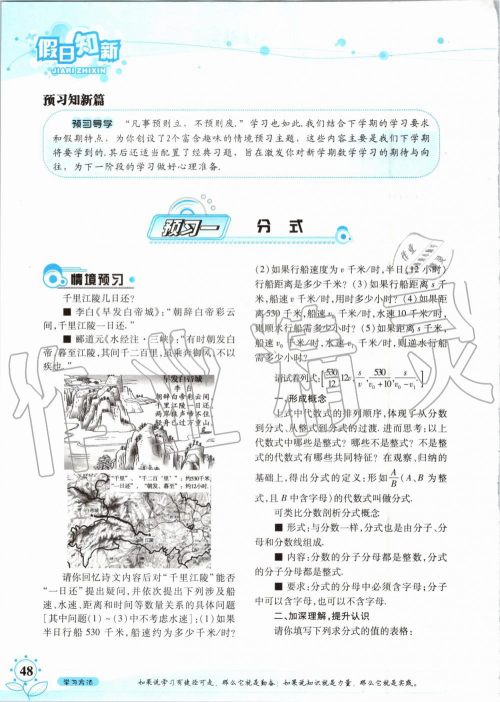 假日知新
JIARI ZHIXIN
预习知新篇
预习导学 “凡事预则立，不预则废.”学习也如此.我们结合下学期的学习要求
和假期特点，为你创设了2个富含趣味的情境预习主题，这些内容主要是我们下学期
将要学到的.其后还适当配置了经典习题，旨在激发你对新学期数学学习的期待与向
往，为下一阶段的学习做好心理准备.
预习一 分式
情境预习
千里江陵几日还?
■ 李白《早发白帝城》：“朝辞白帝彩云
间，千里江陵一日还.”
■ 郦道元《水经注·三峡》：“有时朝发白
帝，暮至江陵，其间千二百里，虽乘奔御风，不以
疾也.”
早发白帝城
李 白
朝辞白帝彩云间，
千里江陵一日还.
两岸猿声啼不住，
轻舟已过万重山.
“千里”、“千二百里”：约530千米，
“一日还”、“朝发，暮至”：约12小时.
请你回忆诗文内容后对“千里江陵”能否
“一日还”提出疑问，并依次提出下列涉及船
速、水速、距离和时间等数量关系的具体问题
[其中问题(1)~(3)中不考虑水速]：(1)如果
半日行船 530 千米，船速约为多少千米/时?
(2)如果行船速度为 v 千米/时，半日(12 小时)
行船距离是多少千米? (3)如果行船距离 s 千
米，船速 v 千米/时，用时多少小时? (4)如果距
离 530 千米，船速 v₀ 千米/时，水速 10 千米/时，
则顺水行船需多少小时? (5)如果距离 s 千米，
船速 v₀ 千米/时，水速 v₁ 千米/时，则逆水行船
需多少小时?
请试着列式：[530/12, 12v, s/v, 530/(v₀+10), s/(v₀-v₁)]
一、形成概念
上式中代数式的排列顺序，体现了从分数
到分式，从整式到分式的过渡. 进而思考：以上
代数式中哪些是整式? 哪些不是整式? 不是整
式的代数式有哪些共同特征? 在观察、归纳的
基础上，得出分式的定义：形如 A/B (A、B 为整
式，且 B 中含字母)的代数式叫做分式.
可类比分数剖析分式概念
■ 形式：与分数一样，分式也是由分子、分
母和分数线组成.
■ 内容：分数的分子分母都是整数，分式的
分子分母都是整式.
■ 要求：分式的分母中必须含字母；分子
中可以含字母，也可以不含字母.
二、加深理解，提升认识
请你填写下列求分式的值的表格：
48
学习方法
如果说学习有捷径可走，那么它就是勤奋；如果说知识就是力量，那么它就是实践.
作业精灵